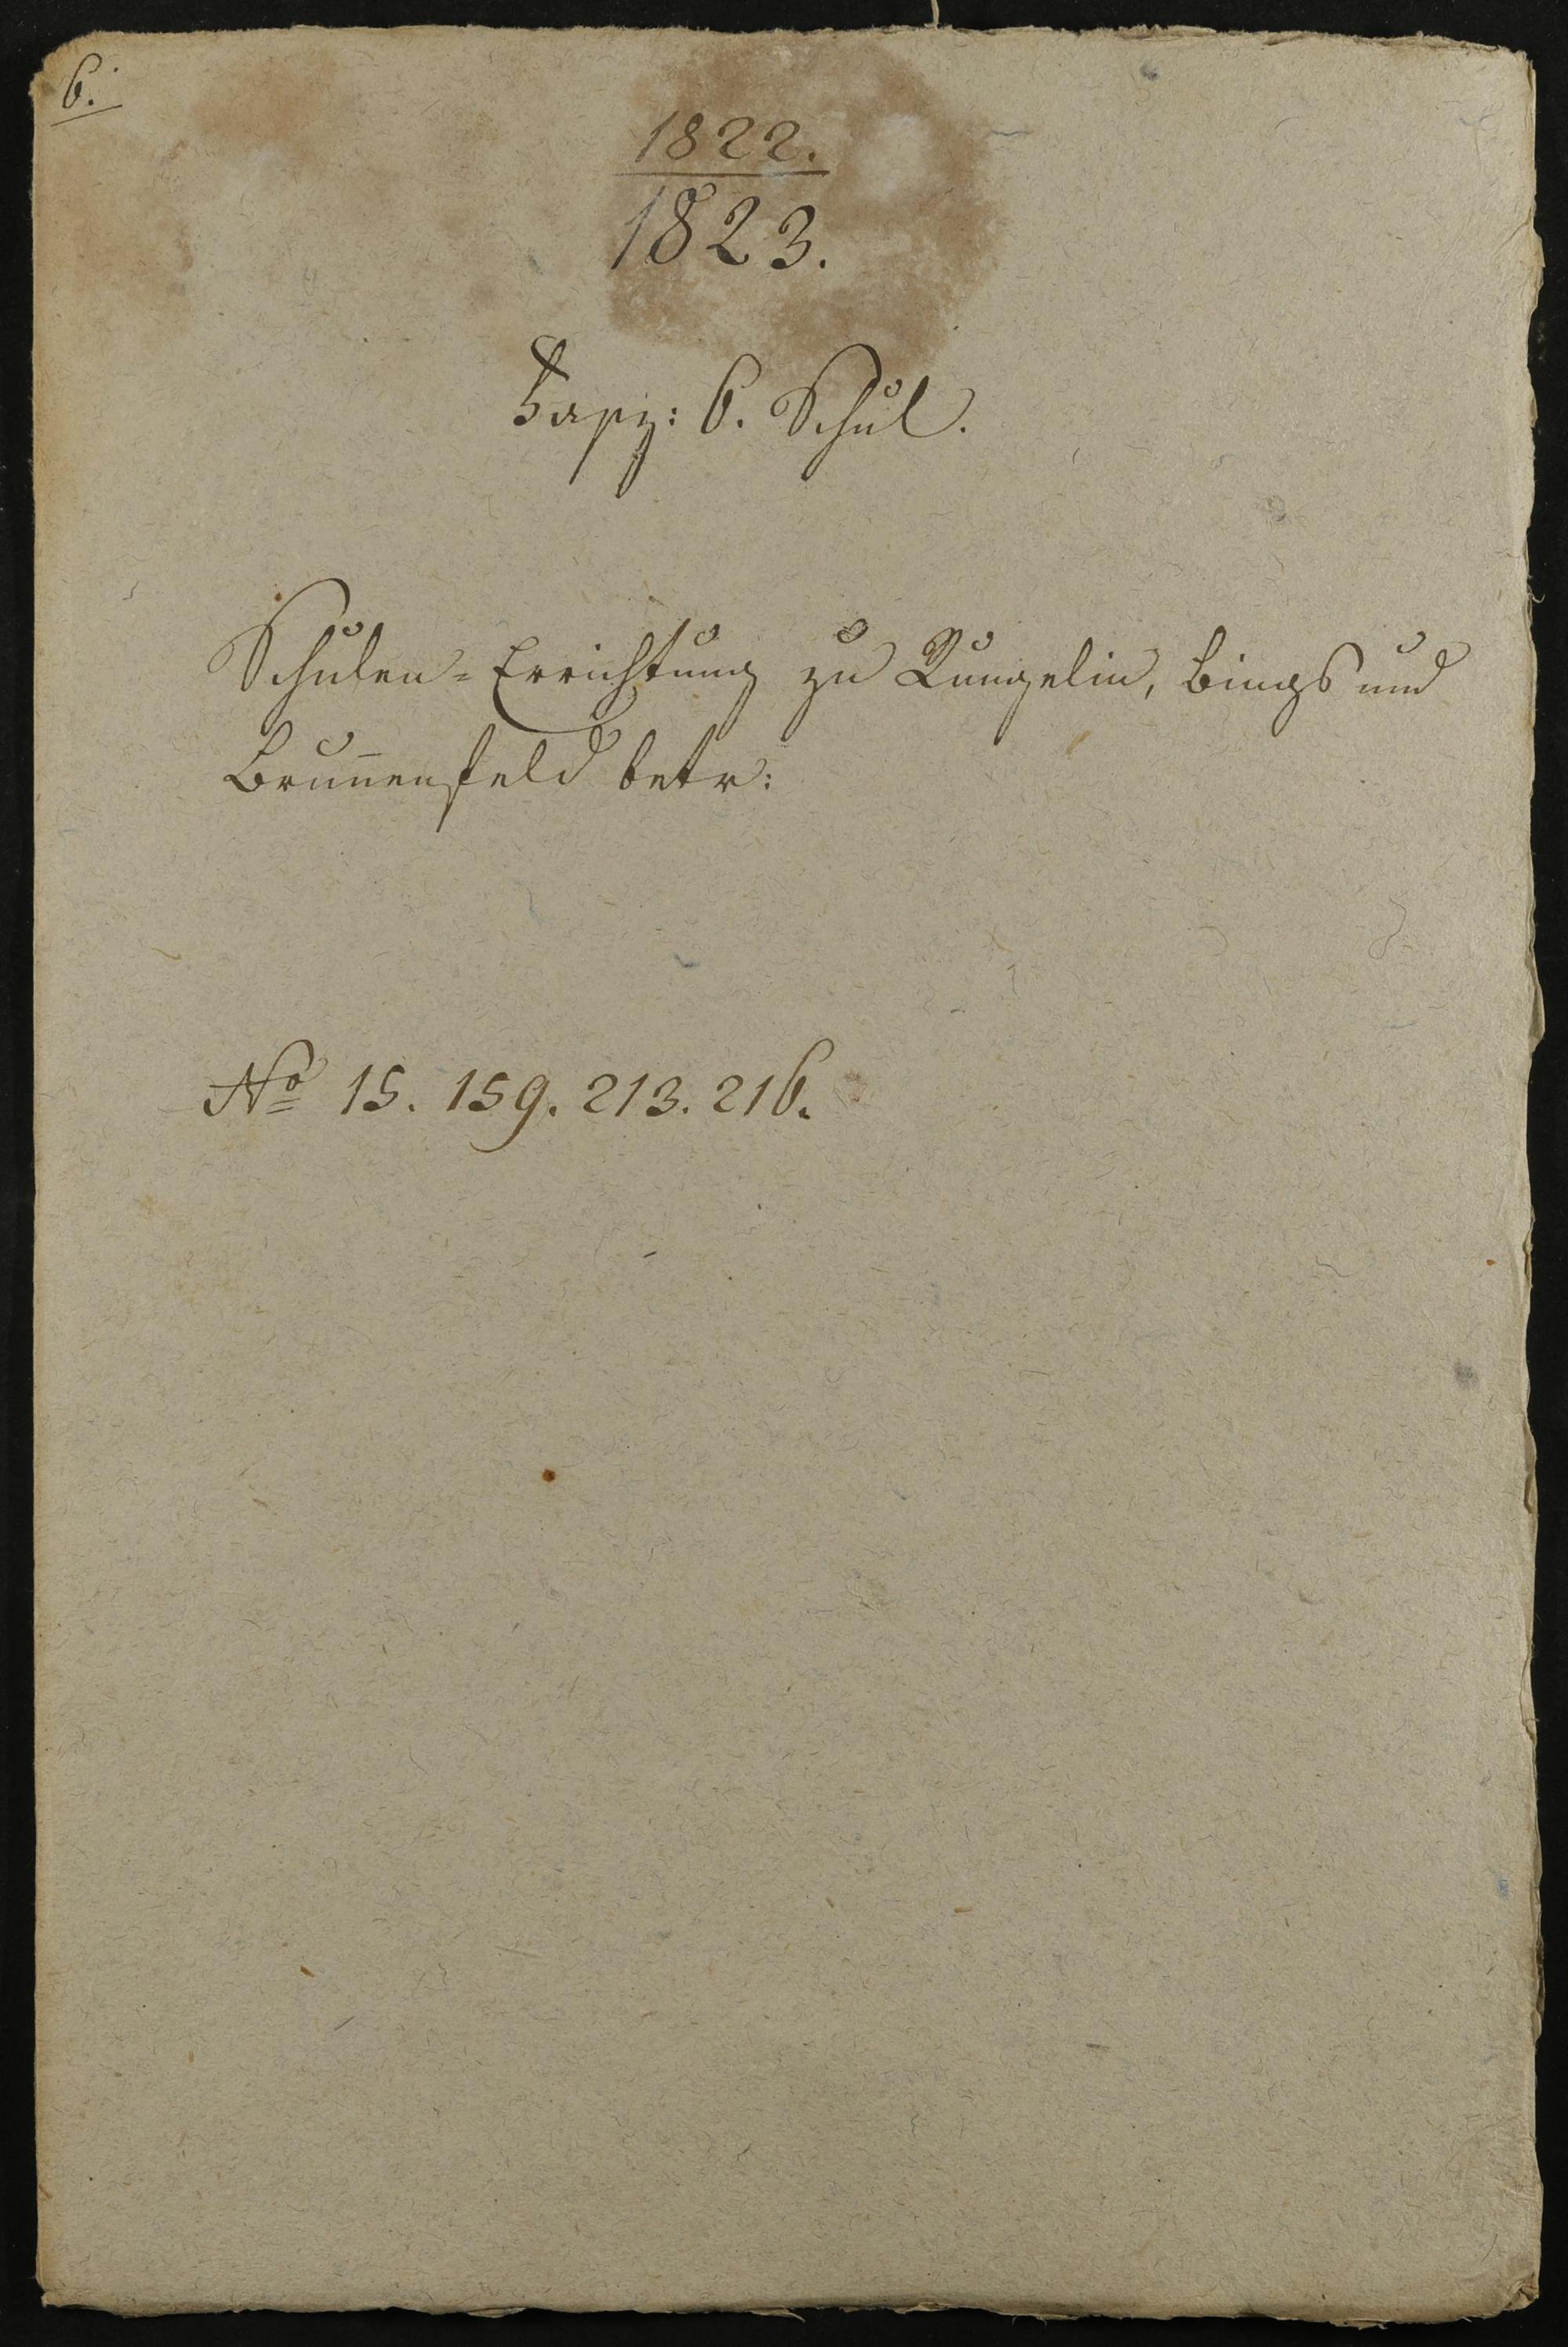 6.
1822.
1823.
Fasz: 6. Schul.
Schulen-Errichtung zu Rungelin, Bings und
Brun̄enfeld betr:
No 15. 159. 213. 216.